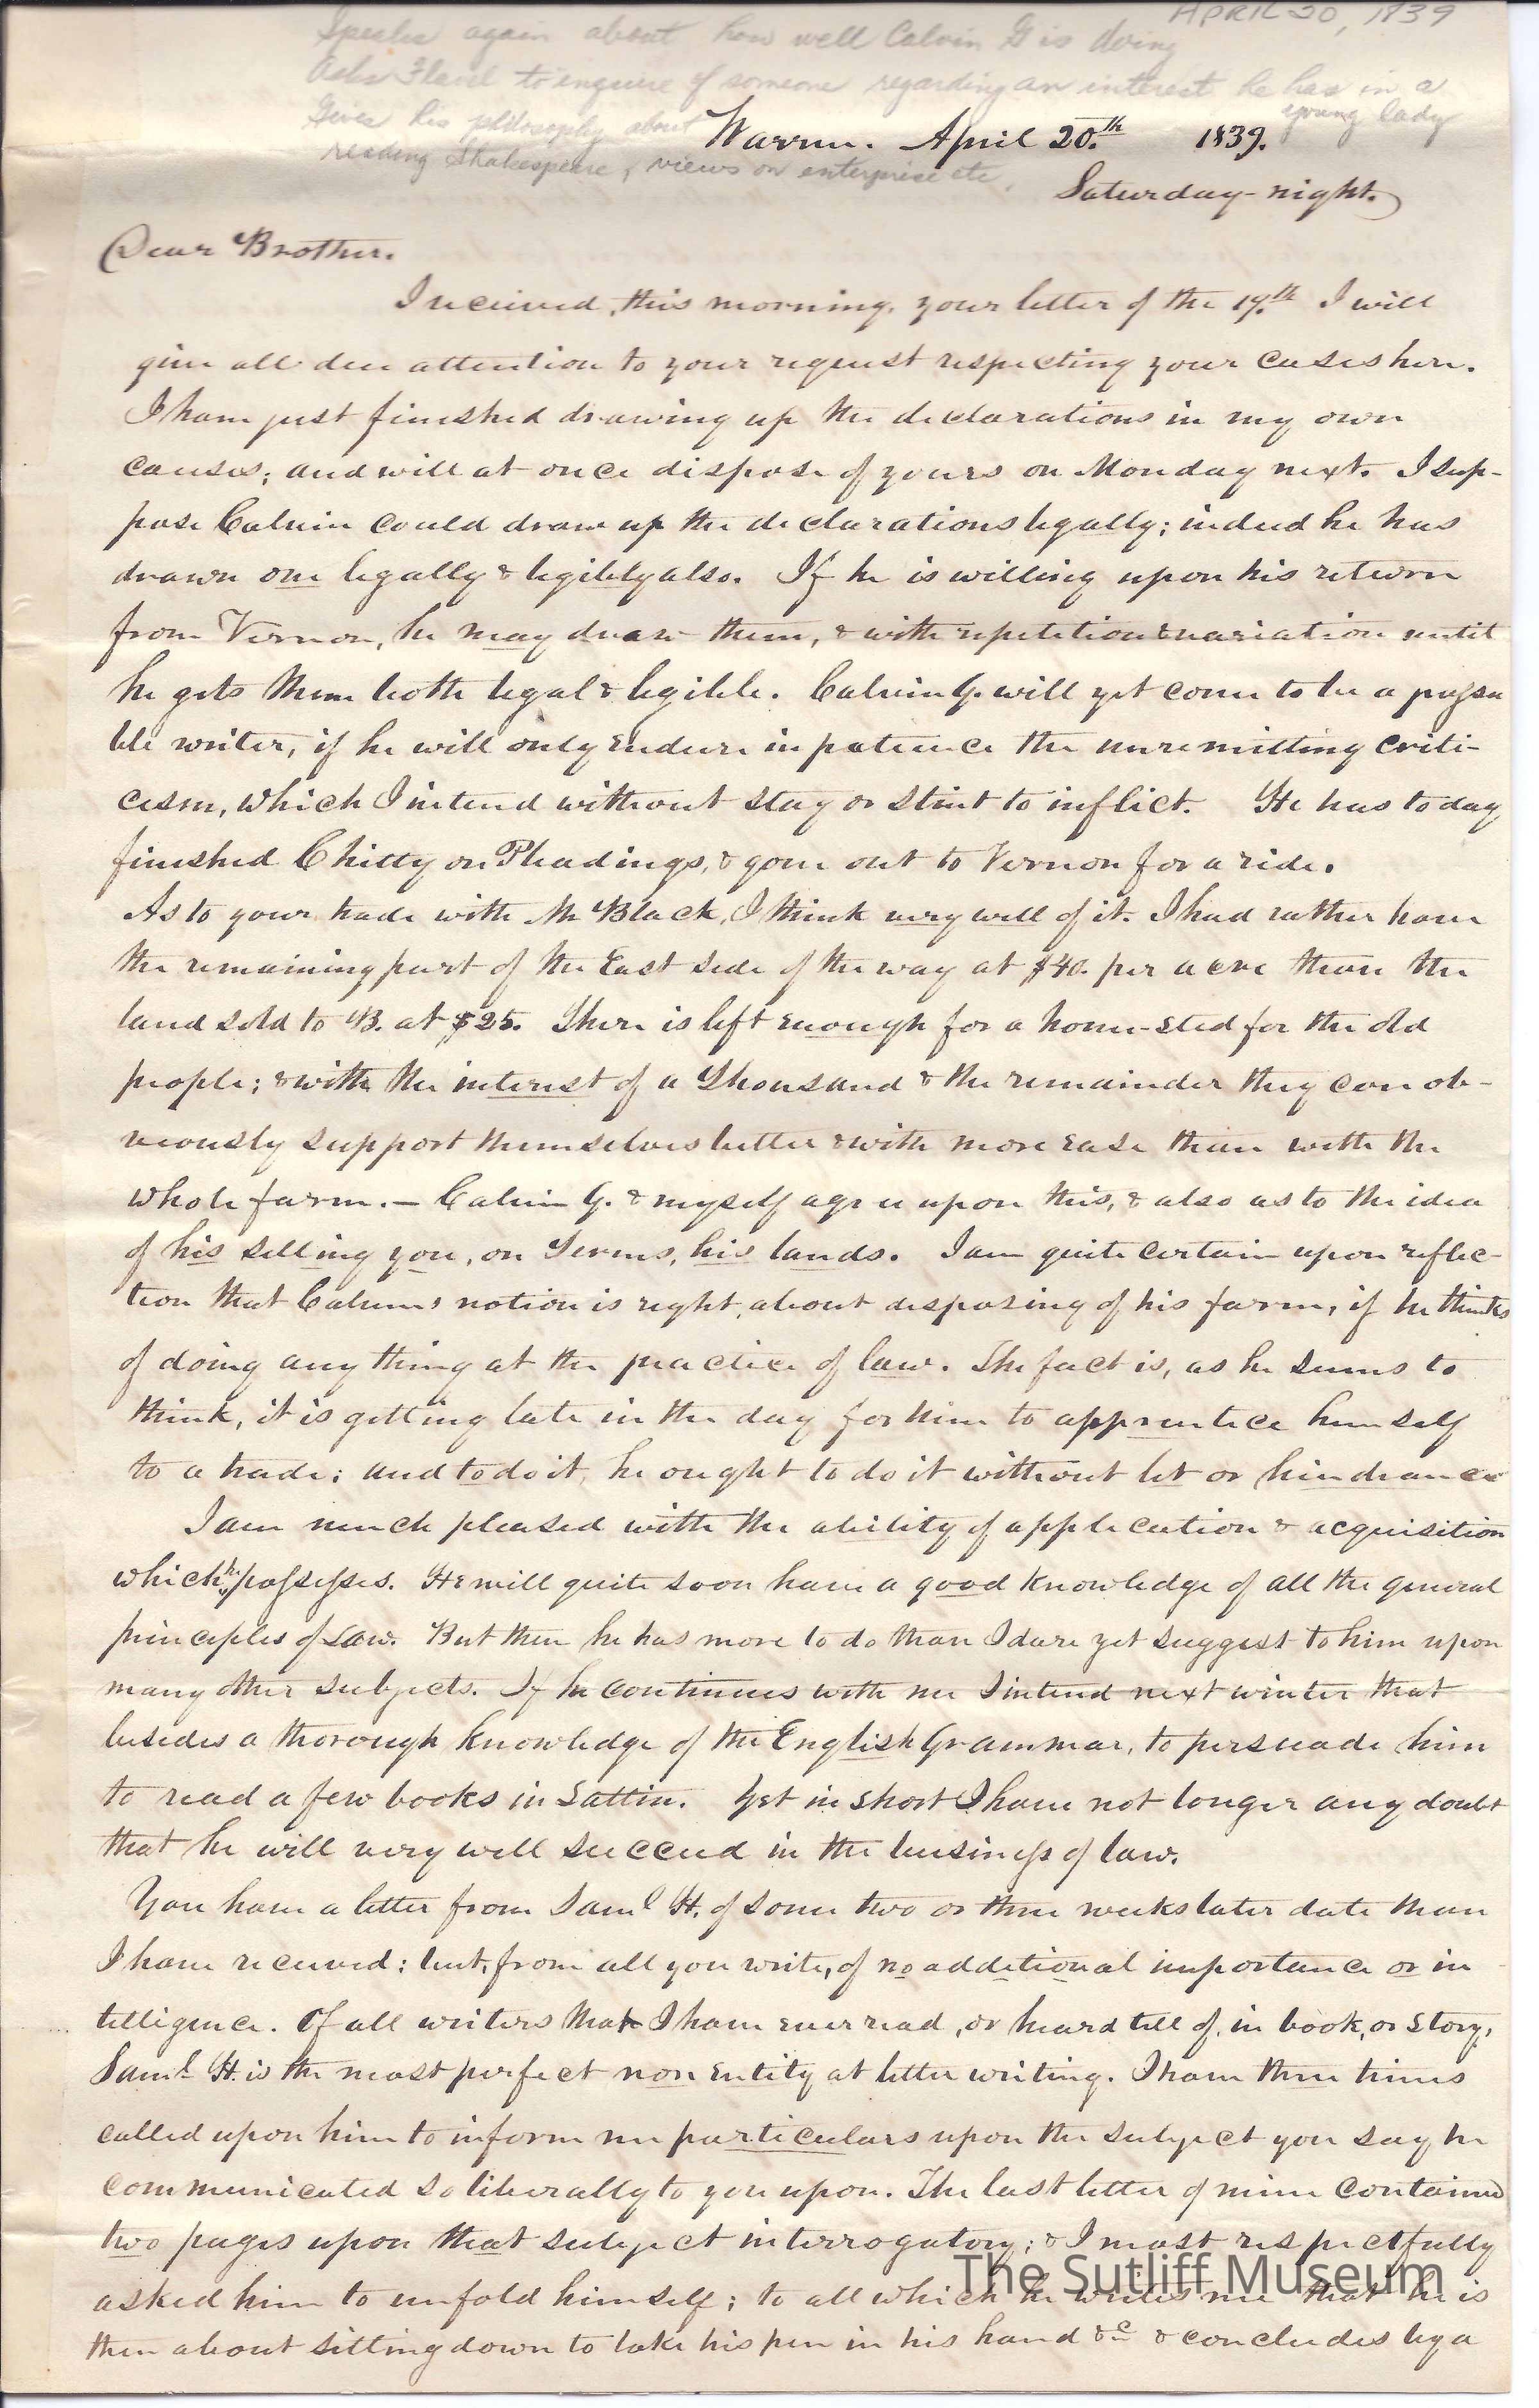 APRIL 20, 1839
Speaks again about how well Calvin G is doing
Asks Flavel to inquire of someone regarding an interest he has in a
young lady
Gives his philosophy about
reading Shakespeare, views on enterprise etc.
Warren. April 20.th 1839.
Saturday-night.
Dear Brother.
I received, this morning, your letter of the 19.th I will
give all due attention to your request respecting your cases here.
I have just finished drawing up the declarations in my own
causes; and will at once dispose of yours on Monday next. I sup-
pose Calvin could draw up the declarations legally; indeed he has
drawn one legally & legibly also. If he is willing upon his return
from Vernon, he may draw them, & with repetition & variation until
he gets them both legal & legible. Calvin G. will yet come to be a passa
ble writer, if he will only endure in patience the unremitting criti-
cism, which I intend without stay or stint to inflict. He has to day
finished Chitty on Pleadings, & gone out to Vernon for a ride.
As to your trade with Mr Black, I think very well of it. I had rather have
the remaining part of the East side of the way at $40. per acre than the
land sold to B. at $25. There is left enough for a home-sted for the old
people; & with the interest of a Thousand & the remainder they can ob-
viously support themselves better & with more ease than with the
whole farm. — Calvin G. & myself agree upon this, & also as to the idea
of his selling you, on Terms, his lands. I am quite certain upon reflec-
tion that Calvins notion is right, about disposing of his farm, if he thinks
of doing any thing at the practice of law. The fact is, as he seems to
think, it is getting late in the day for him to apprentice himself
to a trade; and to do it, he ought to do it without let or hindrance
I am much pleased with the ability of application & acquisition
which he possesses. He will quite soon have a good knowledge of all the general
principles of Law. But then he has more to do than I dare yet suggest to him upon
many other subjects. If he continues with me I intend next winter that
besides a thorough knowledge of the English Grammar, to persuade him
to read a few books in Lattin. Yet in short I have not longer any doubt
that he will very well succeed in the business of law.
You have a letter from Saml H. of some two or three weeks later date than
I have received; but, from all you write, of no additional importance or in
telligence. Of all writers that I have ever read, or heard tell of, in book, or story,
Saml H. is the most perfect non entity at letter writing. I have three times
called upon him to inform me particulars upon the subject you say he
communicated so liberally to you upon. The last letter of mine contained
two pages upon that subject interrogatory; & I most respectfully
asked him to unfold himself; to all which he writes me that he is
then about sitting down to take his pen in his hand &c & concludes by a
The Sutliff Museum